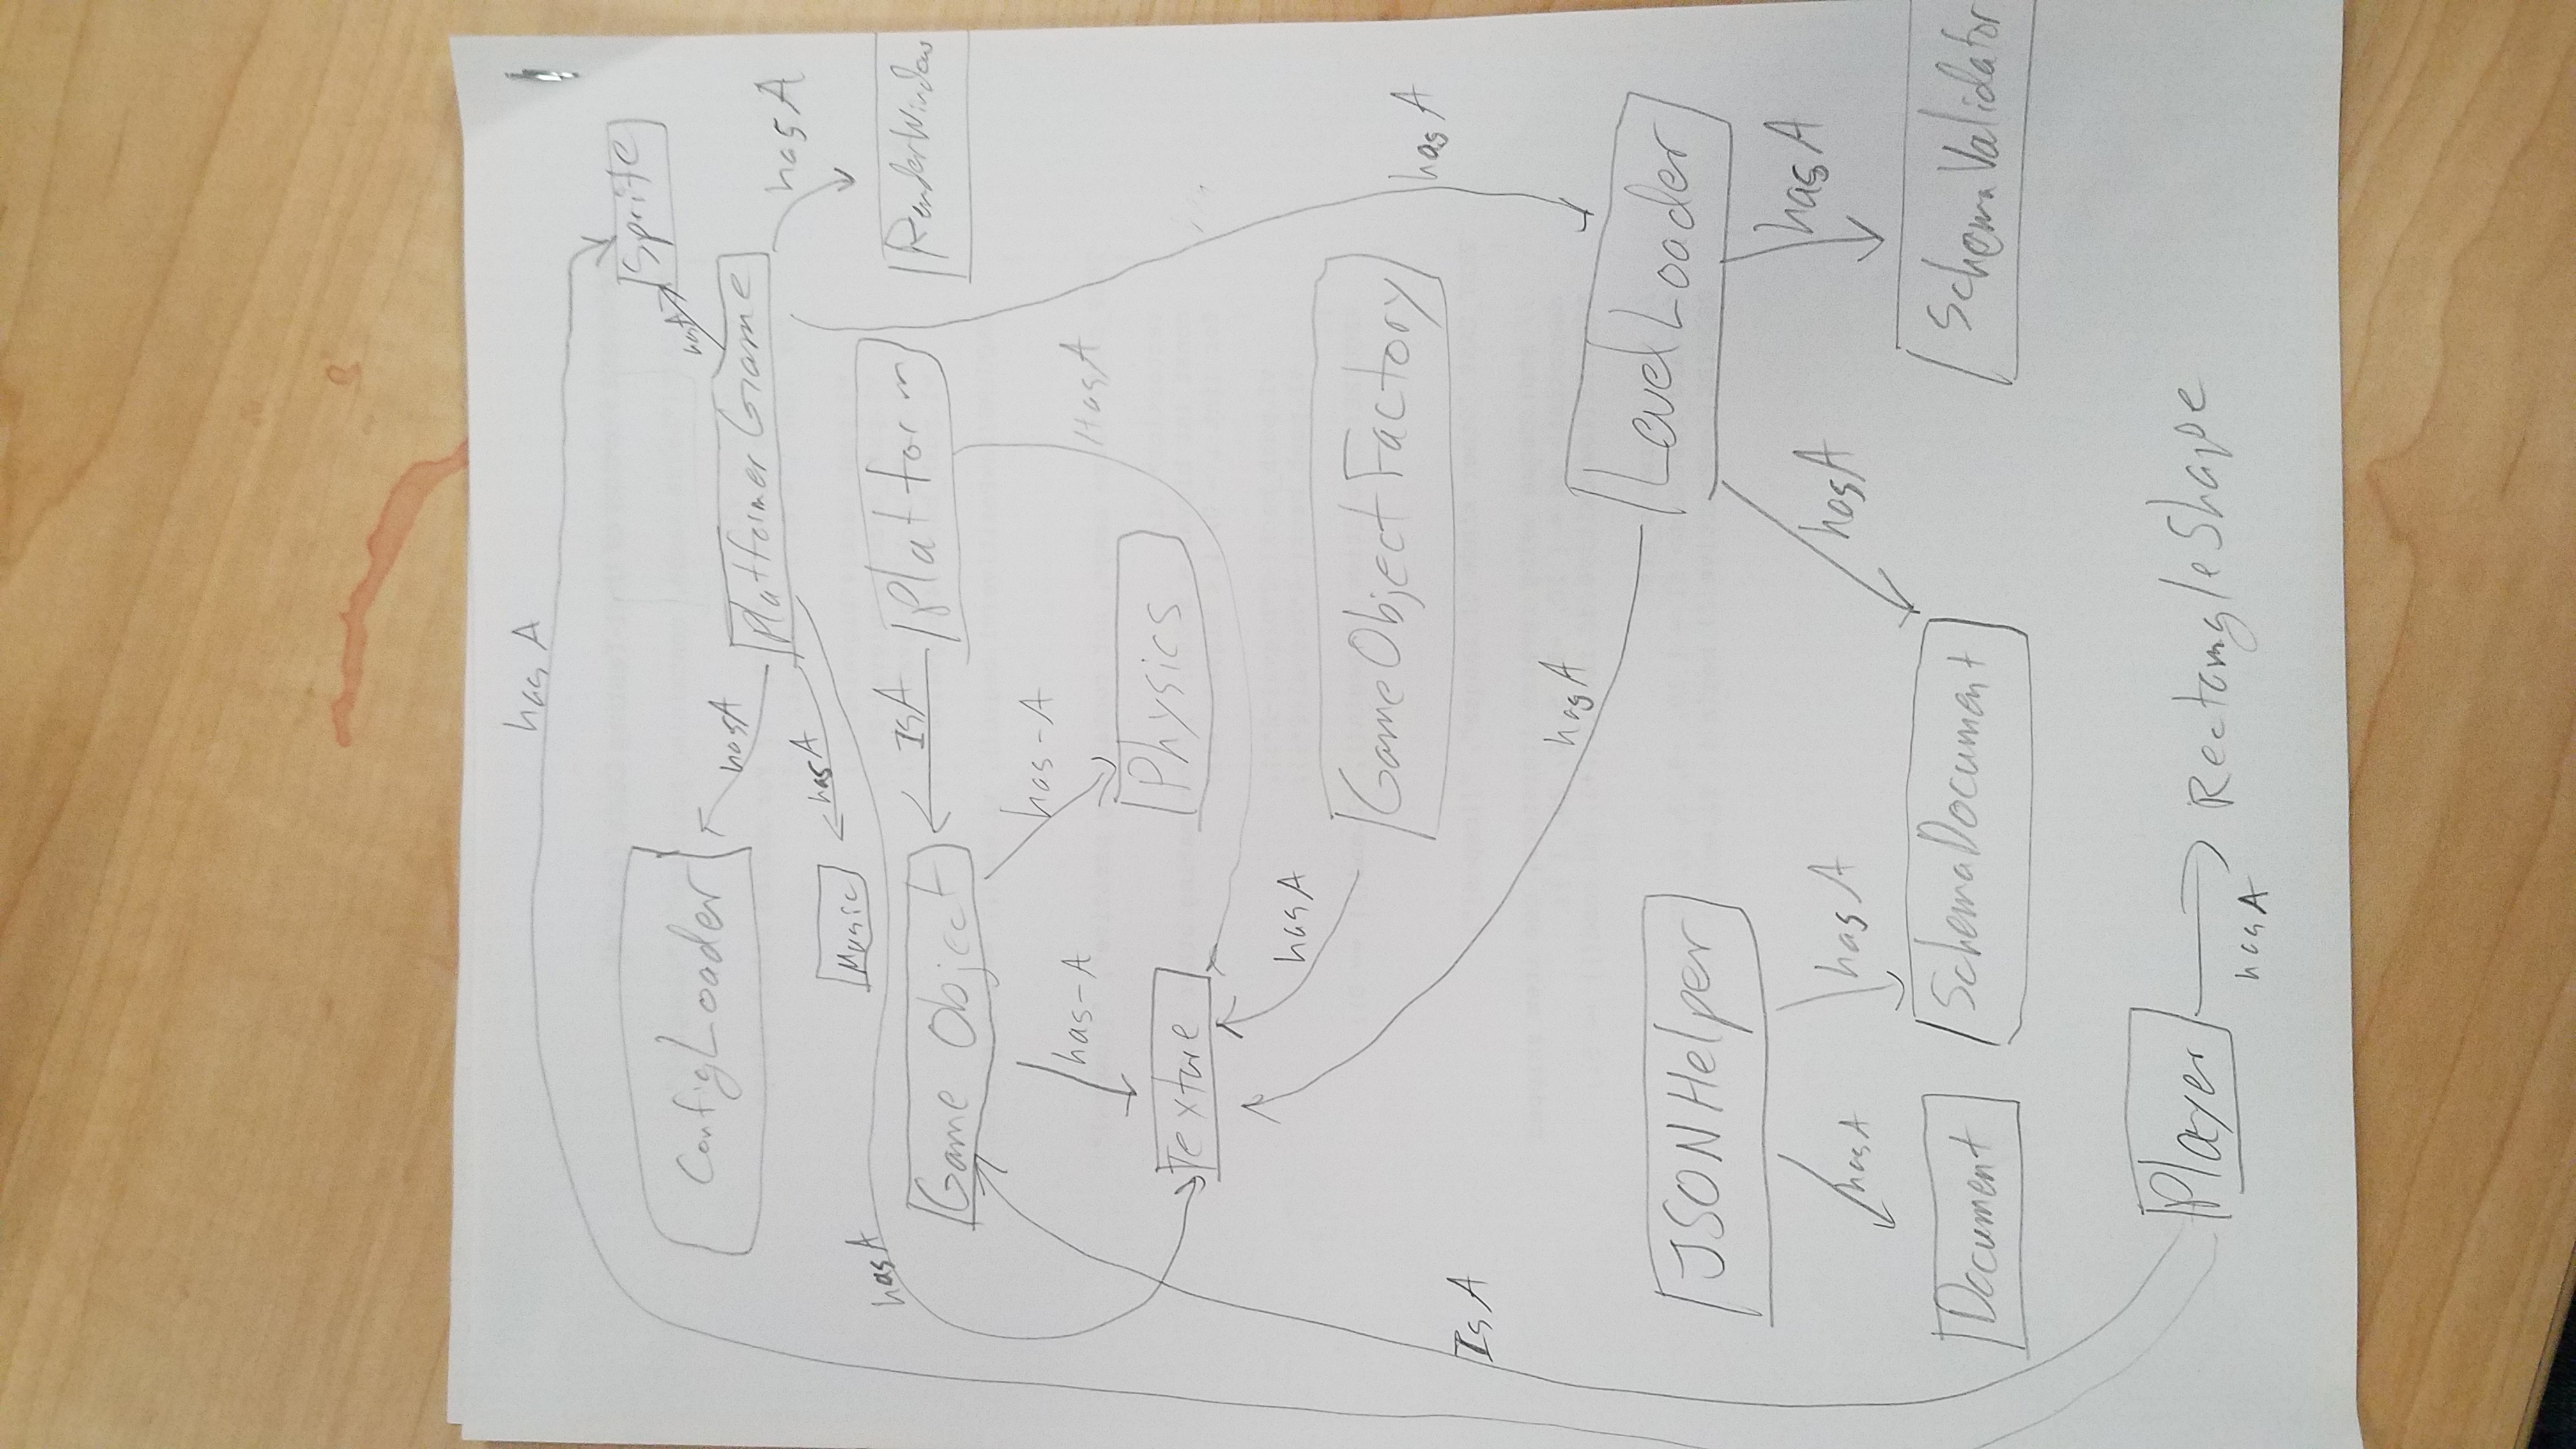 has A
Sprite
ConfigLoader
hasA
hasA
Platformer Game
hasA
hasA
Music
hasA
IsA
Platform
RenderWindow
Game Object
has-A
has-A
HasA
Physics
Texture
hasA
GameObjectFactory
has A
Is A
hasA
LevelLoader
JSONHelper
hasA
hasA
hasA
hasA
Document
SchemaDocument
SchemaValidator
Player
RectangleShape
hasA